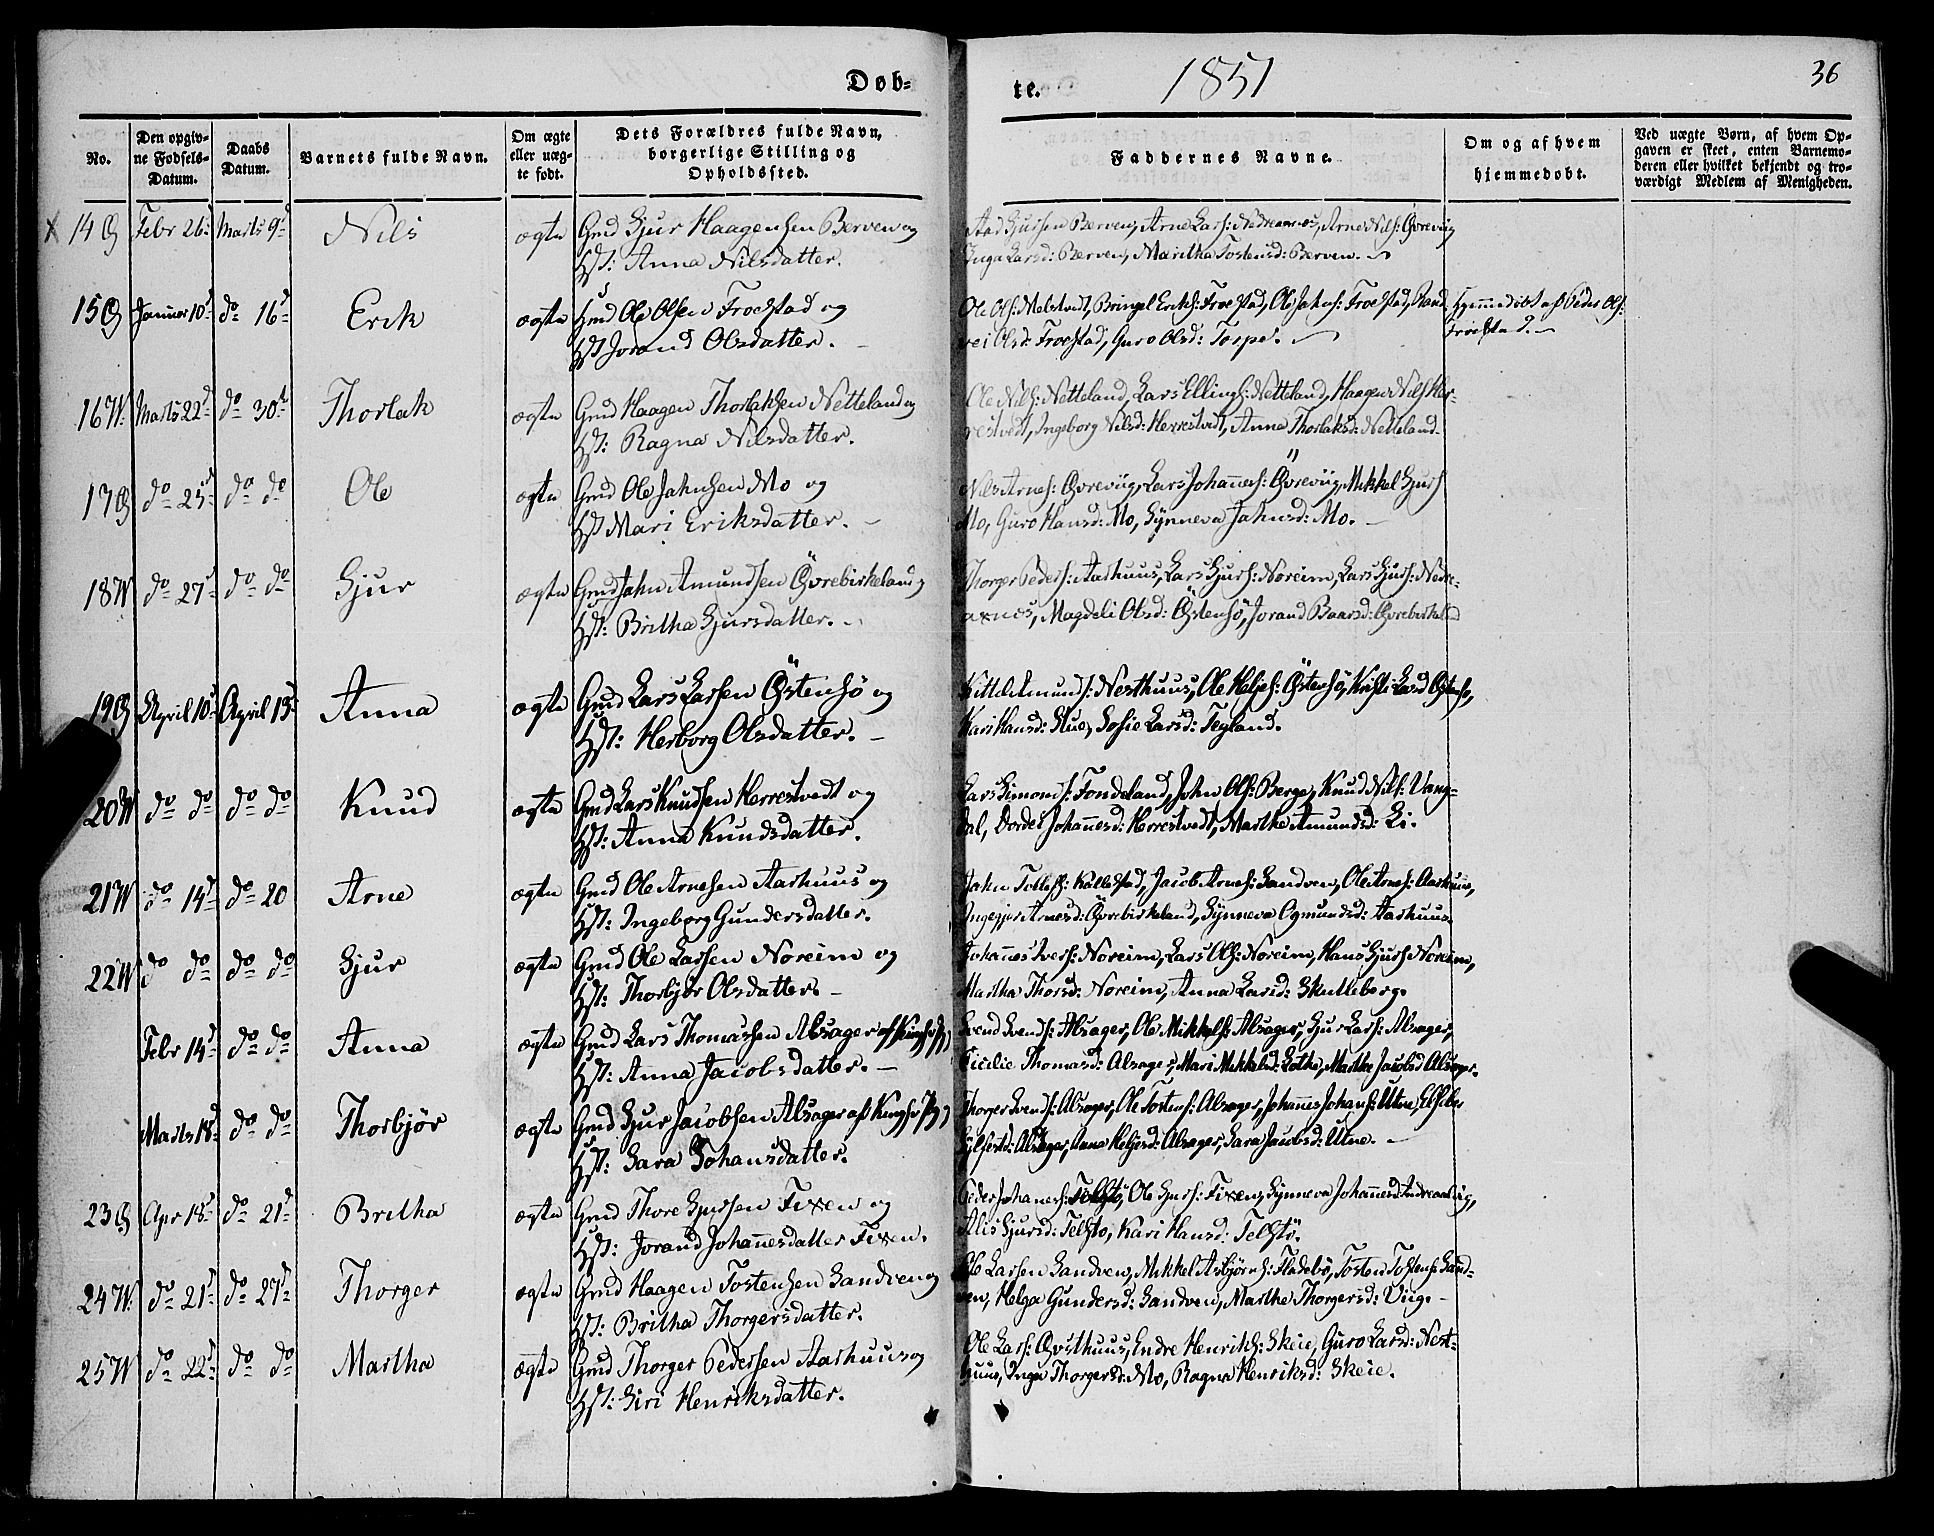 Døb-
te.
1851
36
No.
Den opgiv-
ne Fødsels-
Datum.
Daabs
Datum.
Barnets fulde Navn.
Om ægte
eller uæg-
te født.
Dets Forældres fulde Navn,
borgerlige Stilling og
Opholdssted.
Faddernes Navne.
Om og af hvem
hjemmedøbt.
Ved uægte Børn, af hvem Op-
gaven er skeet, enten Barnemo-
deren eller hvilket bekjendt og tro-
værdigt Medlem af Menigheden.
14 Febr 26 Marts 9 Nils ægte Gmd Sjur Haagensen Berven og
Hst: Anna Nilsdatter.
Sjursen Berven, Arne Lars: Nedreaxnes, Arne Nils: Øvreviig
Inga Larsd: Berven, Maritha Tostensd: Berven.
15 Januar 10 do 16 Erik ægte Hmd Ole Olsen Froestad og
Hst Jorand Olsdatter.
Ole Ols: Melstvedt, Bringel Eriks: Froestad, Ole Jahns: Froestad, Rand-
vei Olsd: Froestad, Guro Olsd: Torpe.
Hjemmedøbt af Peder Ols:
Froestad.
16 Marts 22 do 30 Thorlak ægte Gmd Haagen Thorlaksen Netteland og
Hst: Ragna Nilsdatter.
Ole Nils: Netteland, Lars Ellings: Netteland, Haagen Nils Her-
restvedt, Ingeborg Nilsd: Herrestvedt, Anna Thorlaksd: Netteland.
17 do 25 do do Ole ægte Gmd Ole Jahnsen Mo og
Hst Mari Eriksdatter.
Nils Arnes: Øvreviig, Lars Johannes: Øvreviig, Mikkel Sjurs
Mo, Guro Hansd: Mo, Synneva Jahnsd: Mo.
18 do 27 do do Sjur ægte Gmd Jahn Amundsen Øvrebirkeland og
Hst: Britha Sjursdatter.
Thorger Peders: Aarhuus, Lars Sjurs: Noreim, Lars Sjurs: Nedre-
axnes, Magdeli Olsd: Østensø, Jorand Baarsd: Øvrebirkeland
19 April 10 April 13 Anna ægte Gmd Lars Larsen Østensø og
Hst: Herborg Olsdatter.
Kittel Amunds: Nesthuus, Ole Heljes: Østensø, Kristi Larsd Østensø,
Kari Hansd: Skue, Sofie Larsd: Teyland.
20 do do do do Knud ægte Gmd Lars Knudsen Herrestvedt og
Hst: Anna Knudsdatter.
Lars Simons: Fondeland, John Ols: Berge, Knud Nils: Vang-
dal, Dordei Johannesd: Herrestvedt, Martha Amundsd: Li.
21 do 14 do 20 Arne ægte Gmd Ole Arnesen Aarhuus og
Hst: Ingeborg Gundersdatter.
Jahn Tollefs: Kollestad, Jacob Arnes: Sandven, Ole Arnes: Aarhuus,
Arnesd: Øvrebirkeland, Synneva Ogmundsd: Aarhuus.
22 do do do do Sjur ægte Gmd Ole Larsen Noreim og
Hst: Thorbjør Olsdatter.
Johannes Ivers: Noreim, Lars Ols: Noreim, Hans Sjurs Noreim,
Martha Thorsd: Noreim, Anna Larsd: Skutleberg.
Febr 14 do do Anna ægte Gmd Lars Thomassen Alsager af Kinserv Pgj
Hst: Anna Jacobsdatter.
Svend Svends: Alsager, Ole Mikkels: Alsager, Sjur Lars: Alsager,
Cicilie Thomasd: Alsager, Mari Mikkelsd: Lothe, Martha Jacobsd Alsager.
Marts 18 do do Thorbjør ægte Gmd Sjur Jacobsen Alsager af Kinserv Pgj
Hst: Sara Johansdatter.
Thorger Svends: Alsager, Ole Tostens: Alsager, Johannes Johans: Utne,
Alsager, Anna Heljesd: Alsager, Sara Jacobsd: Utne.
23 Apr 18 do 21 Britha ægte Gmd Thore Sjursen Fixen og
Hst: Jorand Johannesdatter Fixen.
Peder Johannes: Telstø, Ole Sjurs: Fixen, Synneva Johannesd:
Alis Sjursd: Telstø, Kari Hansd: Telstø.
24 do 21 do 27 Thorger ægte Gmd Haagen Tostensen Sandven og
Hst: Britha Thorgersdatter.
Ole Larsen Sandven, Mikkel Asbjørns: Fladebø, Tosten Tostens: Sand-
ven, Helga Gundersd: Sandven, Martha Thorgersd: Viig.
25 do 22 do do Martha ægte Gmd Thorger Pedersen Aarhuus og
Hst: Siri Henriksdatter.
Ole Lars: Øvsthuus, Endre Henriks: Skeie, Guro Larsd: Nest-
huus, Inga Thorgersd: Mo, Ragna Henriksd: Skeie.